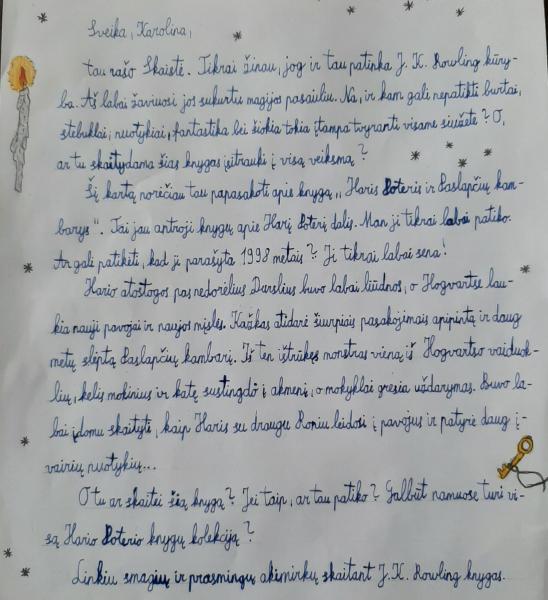 Sveika, Karolina,
tau rašo Skaistė. Tikrai žinau, jog ir tau patinka J. K. Rowling kūry-
ba. Aš labai žaviuosi jos sukurtu magijos pasauliu. Na, ir kam gali nepatikti burtai,
stebuklai, nuotykiai, fantastika bei šiokia tokia įtampa tvyranti visame siužete? O,
ar tu skaitydama šias knygas įsitrauki į visą veiksmą?
Šį kartą norėčiau tau papasakoti apie knygą „Haris Poteris ir Paslapčių kam-
barys". Tai jau antroji knygų apie Harį Poterį dalis. Man ji tikrai labai patiko.
Ar gali patikėti, kad ji parašyta 1998 metais? Ji tikrai labai sena!
Hario atostogos pas nedorėlius Darslius buvo labai liūdnos, o Hogvartse lau-
kia nauji pavojai ir naujos mįslės. Kažkas atidarė šiurpiais pasakojimais apipintą ir daug
metų slėptą Paslapčių kambarį. Iš ten ištrūkęs monstras vieną iš Hogvartso vaiduok-
lių, kelis mokinius ir katę sustingdė į akmenį, o mokyklai gresia uždarymas. Buvo la-
bai įdomu skaityti, kaip Haris su draugu Roniu leidosi į pavojus ir patyrė daug į-
vairių nuotykių...
O tu ar skaitei šią knygą? Jei taip, ar tau patiko? Galbūt namuose turi vi-
są Hario Poterio knygų kolekciją?
Linkiu smagių ir prasmingų akimirkų skaitant J. K. Rowling knygas.